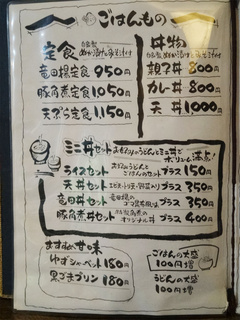 ごはんもの
定食
竜田揚定食 950円
豚角煮定食 1,050円
天ぷら定食 1,150円
丼物
親子丼 800円
カレー丼 800円
天丼 1,000円
ミニ丼セット お好みのうどんとミニ丼でボリューム満点!
ライスセット お好みのうどんとごはんのセット プラス 150円
天丼セット プラス 350円
竜田丼セット プラス 350円
豚角煮丼セット プラス 400円
おすすめ甘味
ゆずシャーベット 180円
黒ごまプリン 180円
ごはんの大盛
100円増
うどんの大盛
100円増